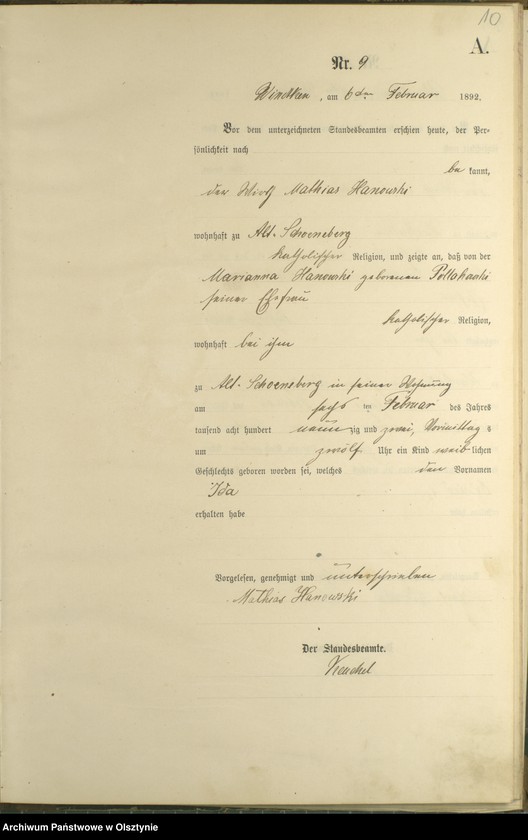 10
A.
Nr. 9
Windtken, am 6ten Februar 1892.
Vor dem unterzeichneten Standesbeamten erschien heute, der Per-
sönlichkeit nach
be kannt,
der Wirth Mathias Hanowski
wohnhaft zu Alt-Schoeneberg
katholischer Religion, und zeigte an, daß von der
Marianna Hanowski geborenen
seiner Ehefrau
katholischer Religion,
wohnhaft bei ihm
zu Alt-Schoeneberg in seiner Wohnung
am sechs ten Februar des Jahres
tausend acht hundert neun zig und zwei, Vormittag s
um zwölf Uhr ein Kind weib lichen
Geschlechts geboren worden sei, welches den Vornamen
Ida
erhalten habe
Vorgelesen, genehmigt und unterschrieben
Mathias Hanowski
Der Standesbeamte.
Archiwum Państwowe w Olsztynie